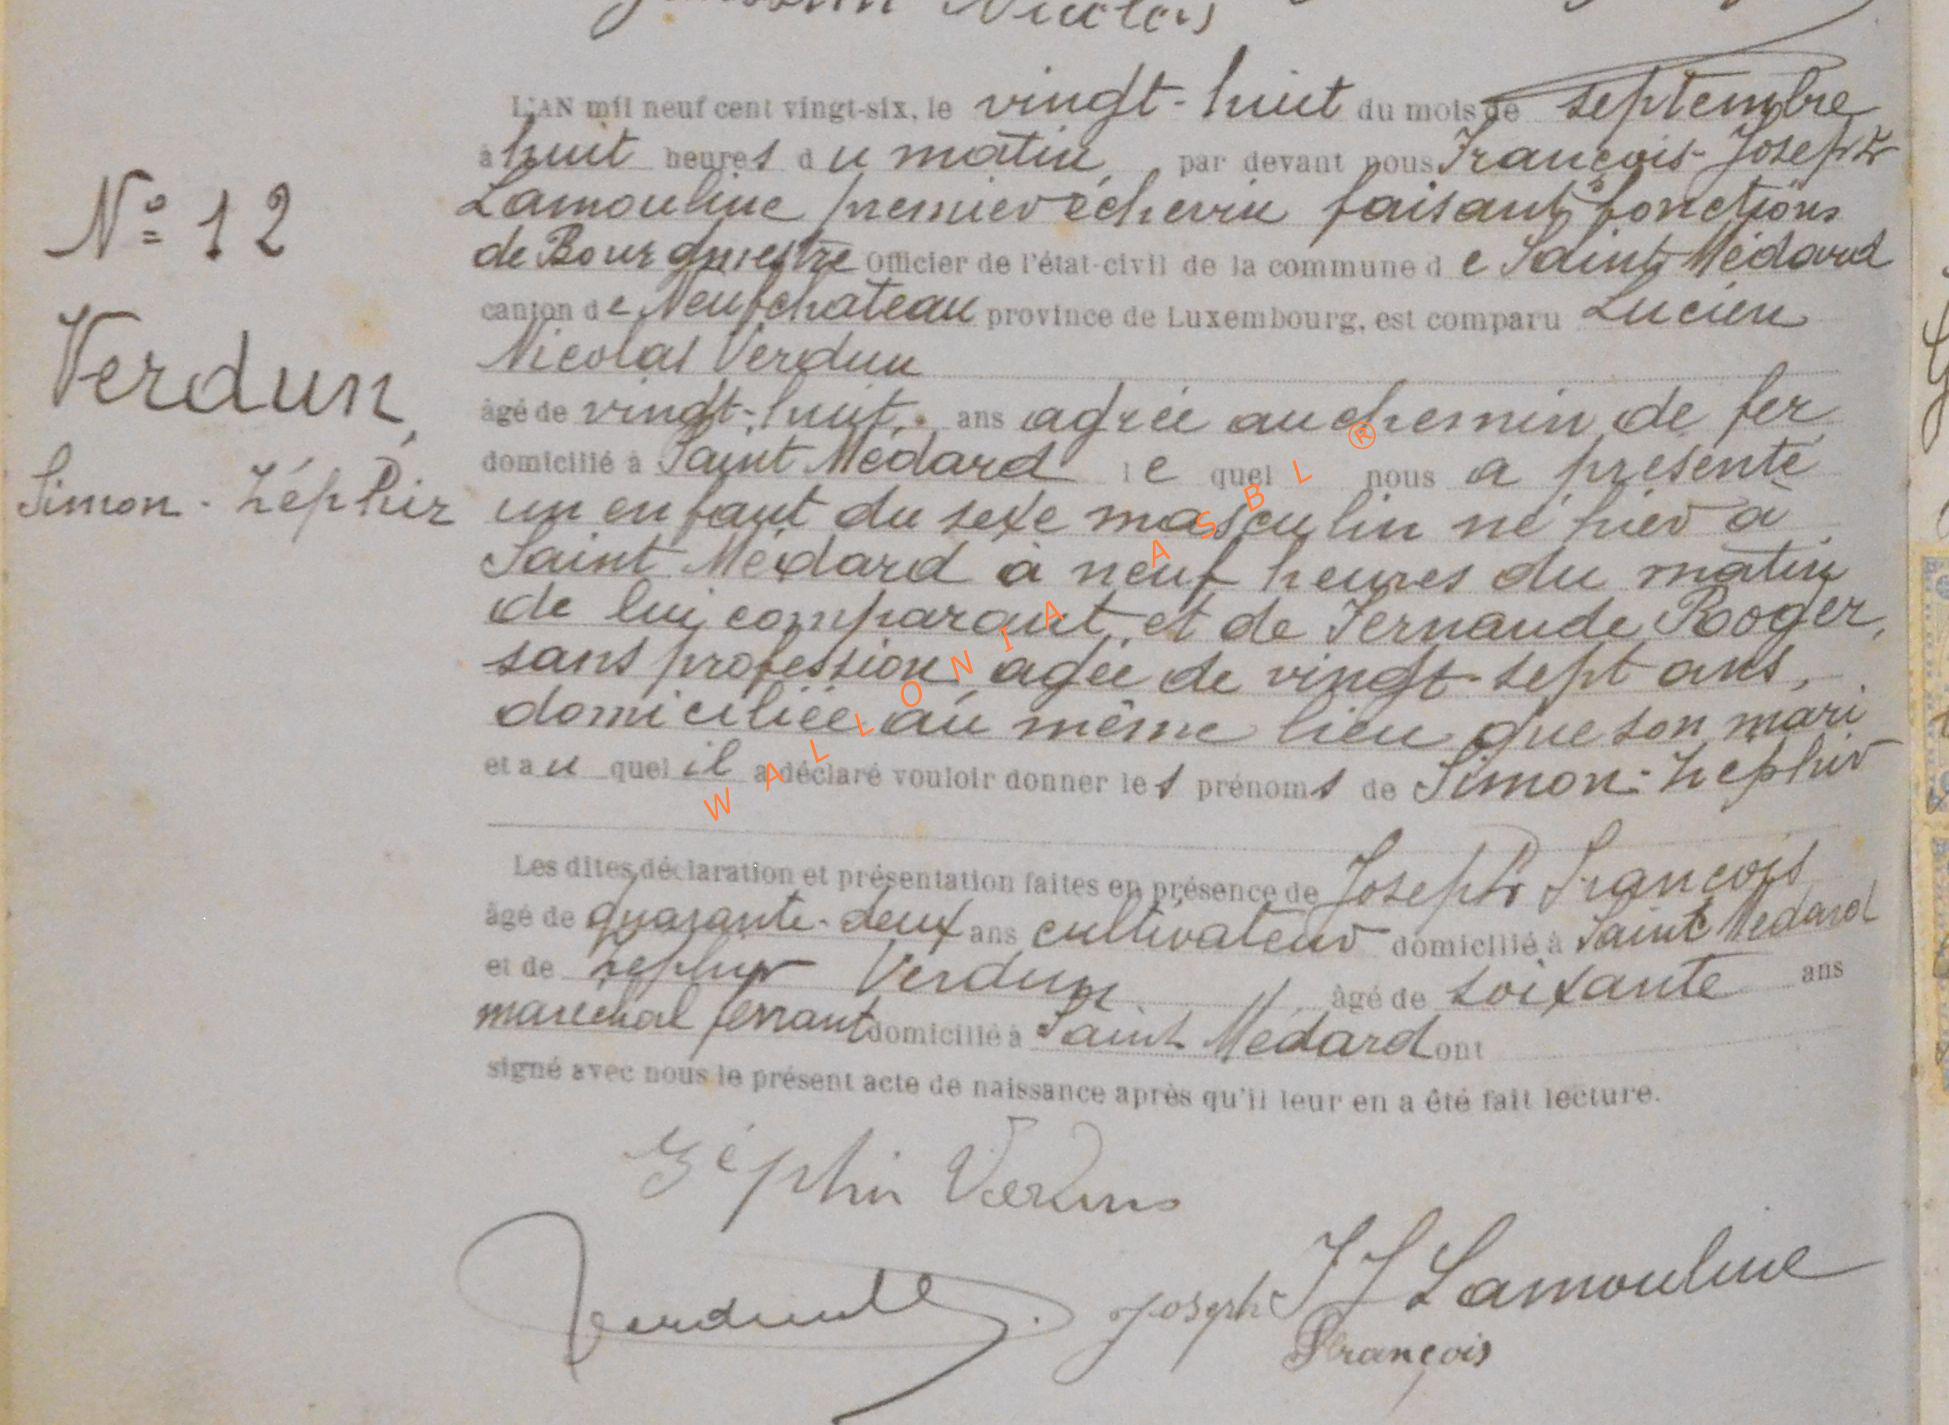 Nicolas
L'AN mil neuf cent vingt-six, le vingt-huit du mois de septembre
à huit heures du matin, par devant nous François-Joseph
Lamouline premier échevin faisant fonctions
de Bourgmestre Officier de l'état-civil de la commune de Saint Médard
canton de Neufchateau province de Luxembourg, est comparu Lucien
Nicolas Verdun
âgé de vingt-huit ans agréé au chemin de fer
domicilié à Saint Médard lequel nous a présenté
un enfant du sexe masculin né hier à
Saint Médard à neuf heures du matin
de lui comparant, et de Fernande Rooger,
sans profession, agée de vingt-sept ans,
domiciliée au même lieu que son mari
et auquel il a déclaré vouloir donner les prénoms de Simon-Zéphir
Les dites déclaration et présentation faites en présence de Joseph François
âgé de quarante-deux ans cultivateur domicilié à Saint Médard
et de Zéphir Verdun âgé de soixante ans
maréchal ferrant domicilié à Saint Médard ont
signé avec nous le présent acte de naissance après qu'il leur en a été fait lecture.
Nº 12
Verdun,
Simon-Zéphir
Zéphir Verdun
Joseph François
FJ Lamouline
WALLONIA ASBL ®